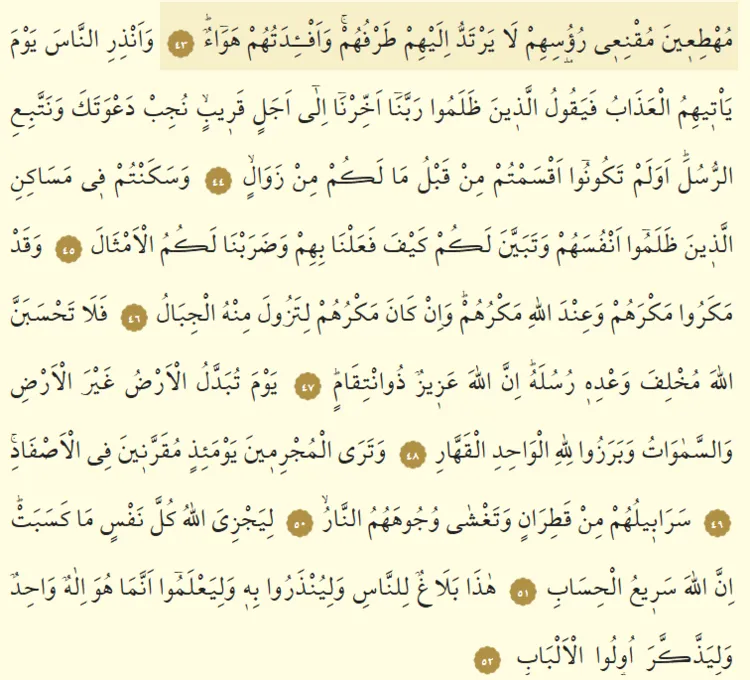 مُهْطِع۪ينَ مُقْنِع۪ي رُؤُ۫سِهِمْ لَا يَرْتَدُّ اِلَيْهِمْ طَرْفُهُمْۚ وَاَفْـِٔدَتُهُمْ هَوَٓاءٌۜ ﴿٤٣﴾ وَاَنْذِرِ النَّاسَ يَوْمَ
يَأْت۪يهِمُ الْعَذَابُ فَيَقُولُ الَّذ۪ينَ ظَلَمُوا رَبَّنَٓا اَخِّرْنَٓا اِلٰٓى اَجَلٍ قَر۪يبٍۙ نُجِبْ دَعْوَتَكَ وَنَتَّبِـعِ
الرُّسُلَۜ اَوَلَمْ تَكُونُٓوا اَقْسَمْتُمْ مِنْ قَبْلُ مَا لَكُمْ مِنْ زَوَالٍۙ ﴿٤٤﴾ وَسَكَنْتُمْ ف۪ي مَسَاكِنِ
الَّذ۪ينَ ظَلَمُٓوا اَنْفُسَهُمْ وَتَبَيَّنَ لَكُمْ كَيْفَ فَعَلْنَا بِهِمْ وَضَرَبْنَا لَكُمُ الْاَمْثَالَ ﴿٤٥﴾ وَقَدْ
مَكَرُوا مَكْرَهُمْ وَعِنْدَ اللّٰهِ مَكْرُهُمْۜ وَاِنْ كَانَ مَكْرُهُمْ لِتَزُولَ مِنْهُ الْجِبَالُ ﴿٤٦﴾ فَلَا تَحْسَبَنَّ
اللّٰهَ مُخْلِفَ وَعْدِه۪ رُسُلَهُۜ اِنَّ اللّٰهَ عَز۪يزٌ ذُوانْتِقَامٍۜ ﴿٤٧﴾ يَوْمَ تُبَدَّلُ الْاَرْضُ غَيْرَ الْاَرْضِ
وَالسَّمٰوَاتُ وَبَرَزُوا لِلّٰهِ الْوَاحِدِ الْقَهَّارِ ﴿٤٨﴾ وَتَرَى الْمُجْرِم۪ينَ يَوْمَئِذٍ مُقَرَّن۪ينَ فِي الْاَصْفَادِۚ
﴿٤٩﴾ سَرَاب۪يلُهُمْ مِنْ قَطِرَانٍ وَتَغْشٰى وُجُوهَهُمُ النَّارُۙ ﴿٥٠﴾ لِيَجْزِيَ اللّٰهُ كُلَّ نَفْسٍ مَا كَسَبَتْۜ
اِنَّ اللّٰهَ سَر۪يعُ الْحِسَابِ ﴿٥١﴾ هٰذَا بَلَاغٌ لِلنَّاسِ وَلِيُنْذَرُوا بِه۪ وَلِيَعْلَمُٓوا اَنَّمَا هُوَ اِلٰهٌ وَاحِدٌ
وَلِيَذَّكَّرَ اُو۬لُوا الْاَلْبَابِ ﴿٥٢﴾